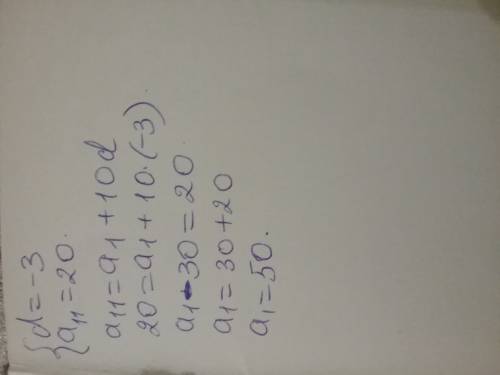 {d=-3
a₁₁=20.
a₁₁=a₁+10d
20=a₁+10·(-3)
a₁-30=20
a₁=30+20
a₁=50.